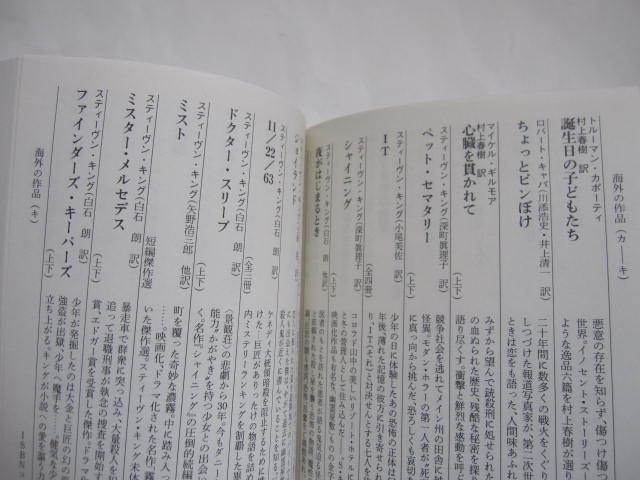 海外の作品(カ―キ)
トルーマン・カポーティ
村上春樹 訳
誕生日の子どもたち
悪意の存在を知らず、傷つけ傷つ
世界、イノセント・ストーリーズ―
ような逸品六篇を村上春樹が選り
ロバート・キャパ(川添浩史・井上清一訳)
ちょっとピンぼけ
二十年間に数多くの戦火をくぐり
しつづけた報道写真家が、第二次世
ときは恋をも語った、人間味あふれ
マイケル・ギルモア
村上春樹 訳
心臓を貫かれて
(上下)
みずから望んで銃殺刑に処せられた
の血ぬられた歴史、残酷な秘密を探り
語り尽くす。衝撃と鮮烈な感動を呼ん
スティーヴン・キング(深町眞理子訳)
ペット・セマタリー
(上下)
競争社会を逃れてメイン州の田舎に越
怪異。モダン・ホラーの第一人者が“死
に真っ向から挑んだ、恐ろしくも哀切な
スティーヴン・キング(小尾芙佐訳)
IT
(全四冊)
少年の日に体験したあの恐怖の正体は
年後、薄れた記憶の彼方に引き寄せられ
り、IT〈それ〉と対決せんとする七人を
スティーヴン・キング(深町眞理子訳)
シャイニング
(上下)
コロラド山中の美しいリゾート・ホテルに
と冬の管理人として住み
スティーヴン・キング(白石朗 他訳)
夜がはじまるとき
スティーヴン・キング(白石 朗 訳)
ジョイランド
スティーヴン・キング(白石 朗 訳)
11/22/63
(全三冊)
ケネディ大統領暗殺を阻止するために
けた!巨匠がありったけの物語を詰め
内ミステリーランキングを制覇した
スティーヴン・キング(白石 朗 訳)
ドクター・スリープ
(上下)
〈景観荘〉の悲劇から30年。今もダニー
能力“かがやき”を持つ少女との出会い
く。名作『シャイニング』の圧倒的続
スティーヴン・キング(矢野浩三郎 他訳)
ミスト
短編傑作選
町を覆った奇妙な濃霧。中に踏み入っ
……。映画化、ドラマ化された名作「霧
いた傑作選。スティーヴン・キング未体
スティーヴン・キング(白石 朗 訳)
ミスター・メルセデス
(上下)
暴走車で群衆に突っ込み、大量殺人を
追って退職刑事が執念の捜査を開始す
賞、エドガー賞を受賞した傑作。ドラマ
スティーヴン・キング(白石 朗 訳)
ファインダーズ・キーパーズ
(上下)
少年が発掘したのは大金と巨匠の幻の
強盗が出獄、少年に魔手
立ち上がる。キングが“小説”への愛を謳う
海外の作品(キ)
ISBN